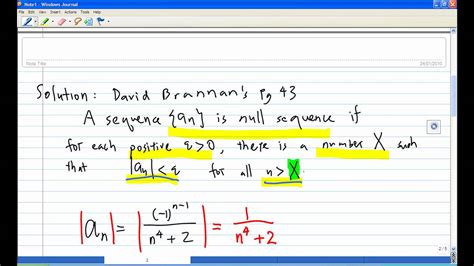 Note1 - Windows Journal
Note Title
24/01/2010
Solution: David Brannan's pg 43
A sequence {an} is null sequence if
for each positive ε>0, there is a number X such
that |an| < ε for all n > X.
|an| = | (-1)^(n-1) / (n^4 + 2) | = 1 / (n^4 + 2)